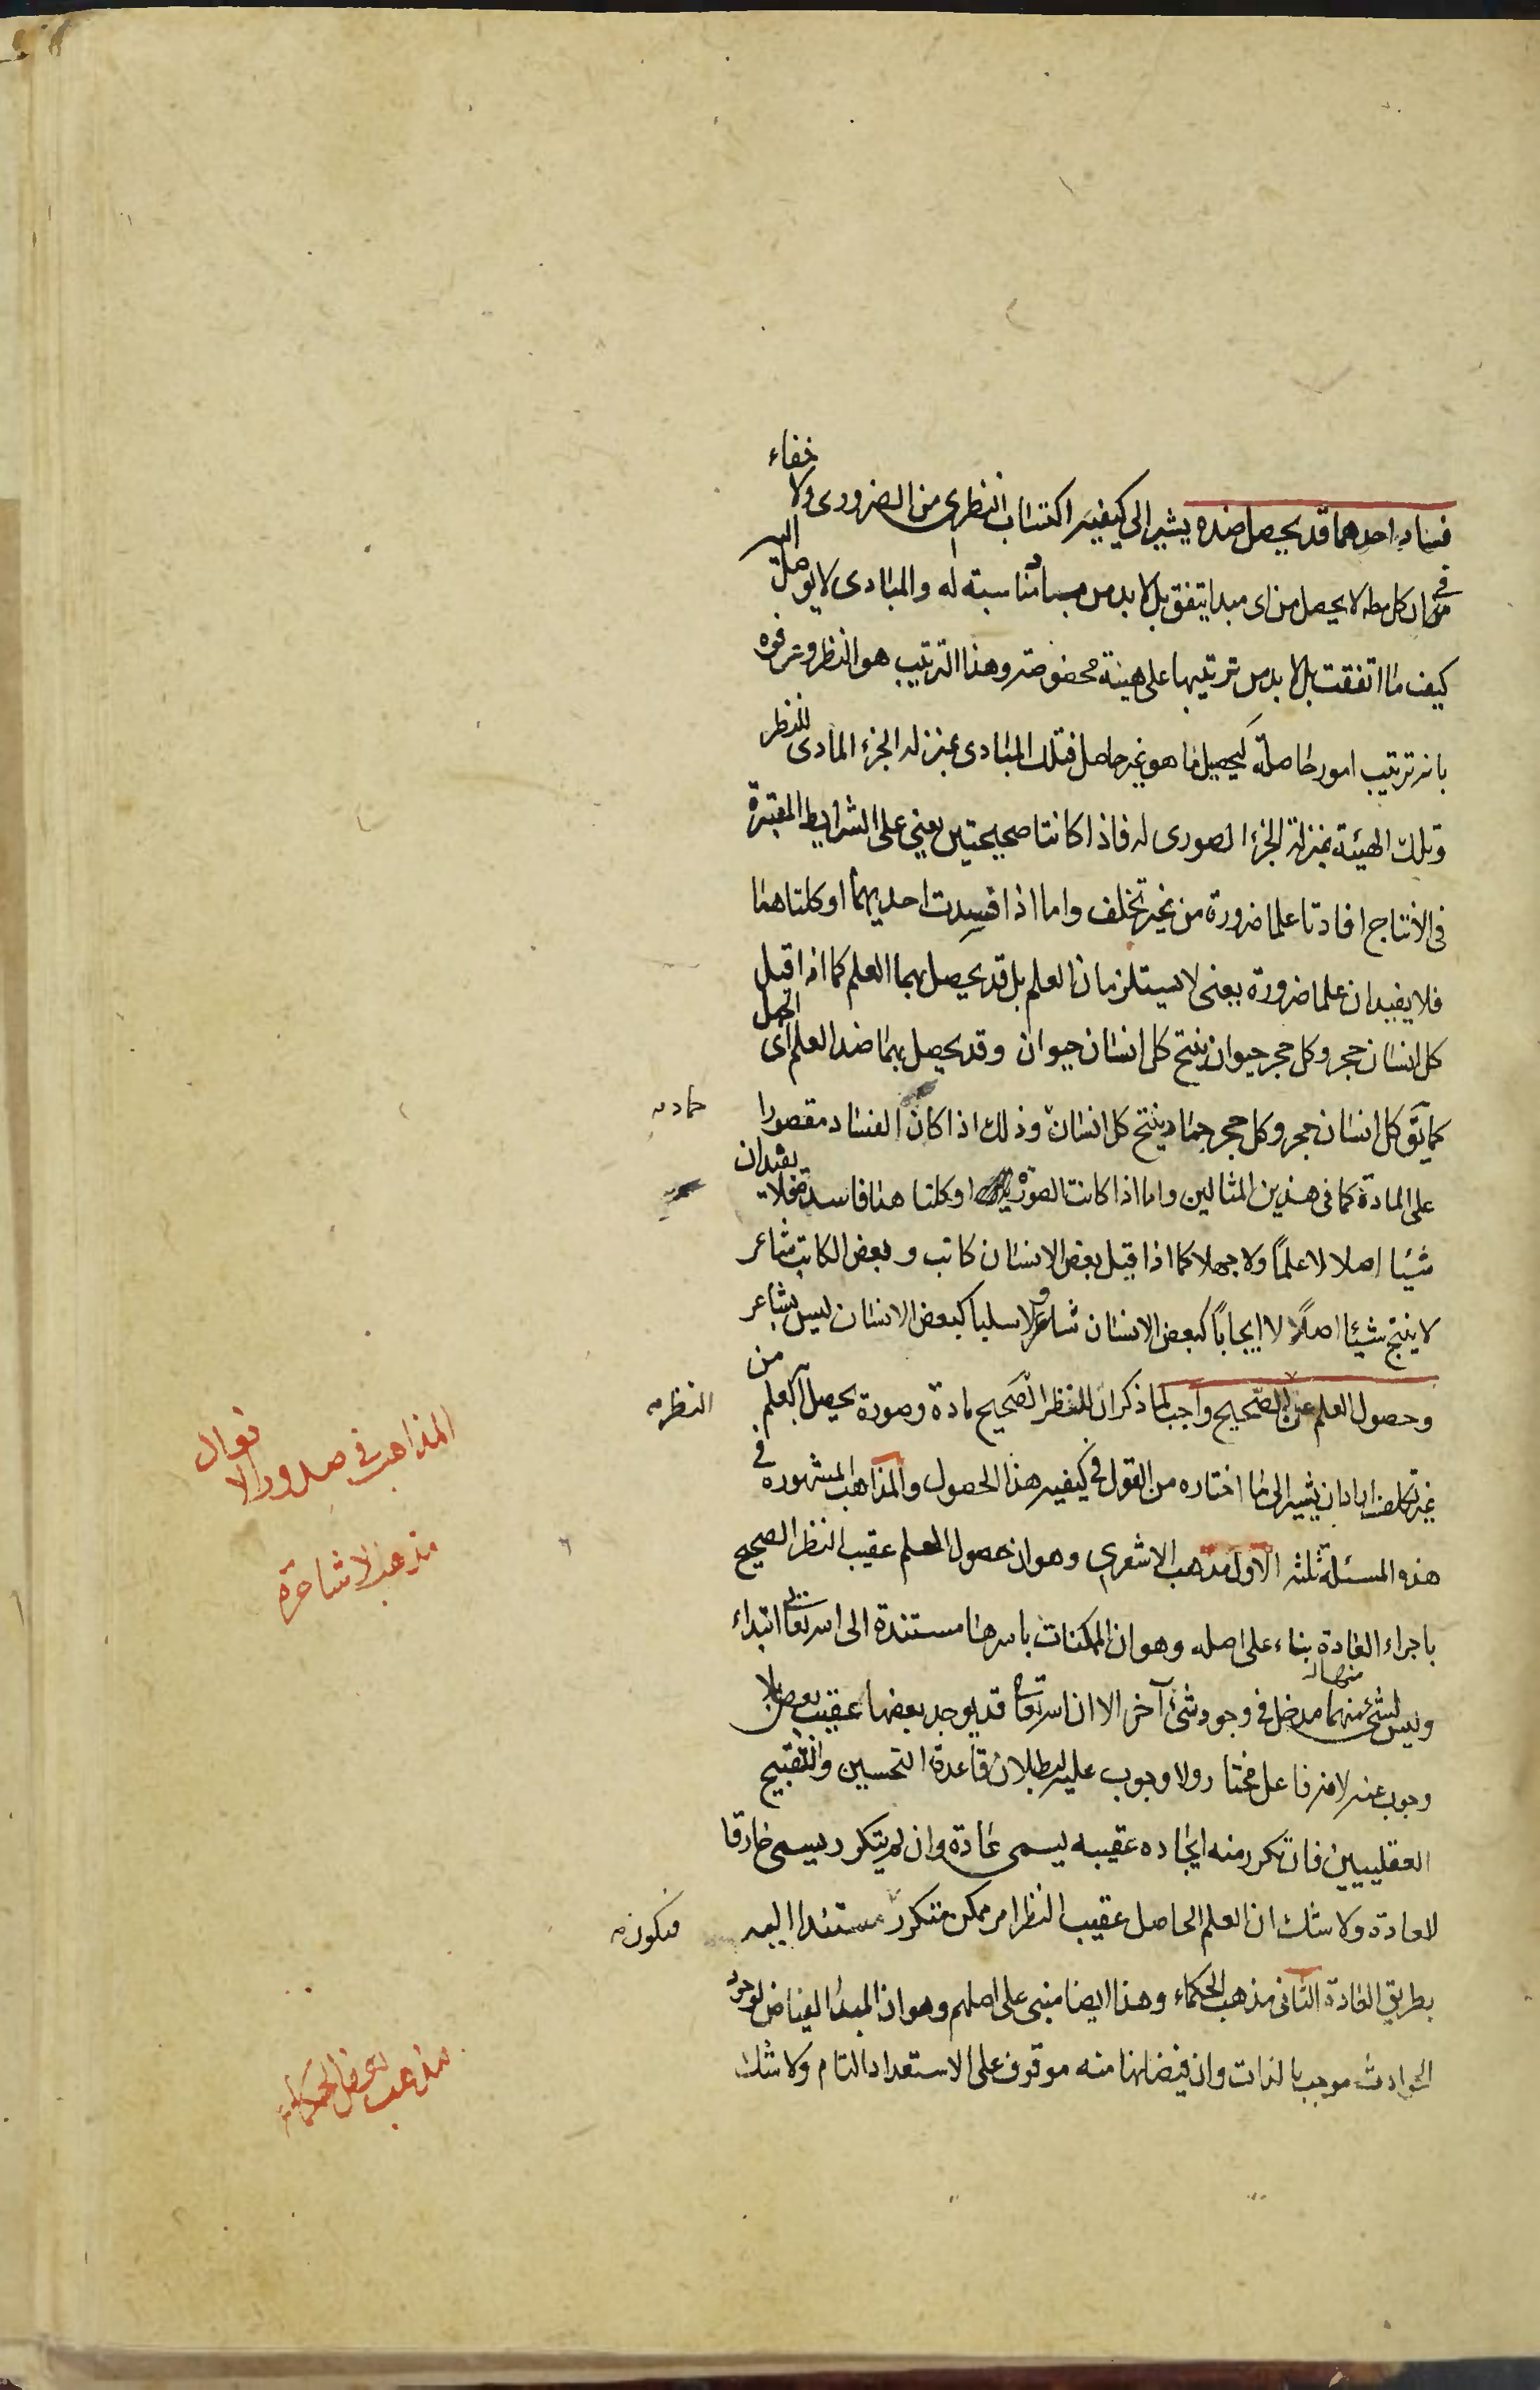 فساد احدهما قد يحصل ضده يشير الى كيفية اكتساب النظرى من الضرورى ولا خفاء
فى ان كل مط لا يحصل من اى مبدا يتفق بل لا بد من مباد مناسبة له والمبادى لا يوصل اليه
كيف ما اتفقت بل لا بد من ترتيبها على هيئة مخصوصة وهذا الترتيب هو النظر وعرفوه
بانه ترتيب امور حاصلة ليحصل ما هو غير حاصل فتلك المبادى بمنزلة الجزء المادى للنظر
وتلك الهيئة بمنزلة الجزء الصورى له فاذا كانتا صحيحتين يعنى على الشرايط المعتبرة
فى الانتاج افادتا علما ضرورة من غير تخلف واما اذا فسدت احديهما او كلتاهما
فلا يفيدان علما ضرورة بمعنى لا يستلزمان العلم بل قد يحصل بهما العلم كما اذا قيل
كل انسان حجر وكل حجر حيوان ينتج كل انسان حيوان وقد يحصل بهما ضد العلم اى الجهل
كما يق كل انسان حجر وكل حجر جماد ينتج كل انسان وذلك اذا كان الفساد مقصورا
جماد
على المادة كما فى هذين المثالين واما اذا كانت الصورة او كلتاهما فاسدة فلا يفيدان
شيئا اصلا لا علما ولا جهلا كما اذا قيل بعض الانسان كاتب وبعض الكاتب شاعر
لا ينتج شيئا اصلا لا ايجابا كبعض الانسان شاعر ولا سلبا كبعض الانسان ليس بشاعر
وحصول العلم عن الصحيح واجب لما ذكر ان للنظر الصحيح مادة وصورة يحصل العلم من
النظر
غير تخلف اراد ان يشير الى ما اختاره من القول فى كيفية هذا الحصول والمذاهب المشهورة فى
هذه المسئلة ثلثة الاول مذهب الاشعرى وهو ان حصول العلم عقيب النظر الصحيح
باجراء العادة بناء على اصله وهو ان الممكنات باسرها مستندة الى الله تعالى ابتداء
وليس لشئ منها مدخل فى وجود شئ آخر الا ان الله تعالى قد يوجد بعضها عقيب بعض بلا
وجوب عنه لانه فاعل مختار ولا وجوب عليه لبطلان قاعدة التحسين والتقبيح
العقليين فان تكرر منه ايجاده عقيبه يسمى عادة وان لم يتكرر يسمى خارقا
للعادة ولا شك ان العلم الحاصل عقيب النظر امر ممكن متكرر مستندا اليه
فيكون
بطريق العادة الثانى مذهب الحكماء وهذا ايضا مبنى على اصلهم وهو ان المبدا الفياض لوجود
الحوادث موجب بالذات وان فيضانها منه موقوف على الاستعداد التام ولا شك
المذاهب فى صدور الافعال
مذهب الاشاعرة
مذهب بعض الحكماء